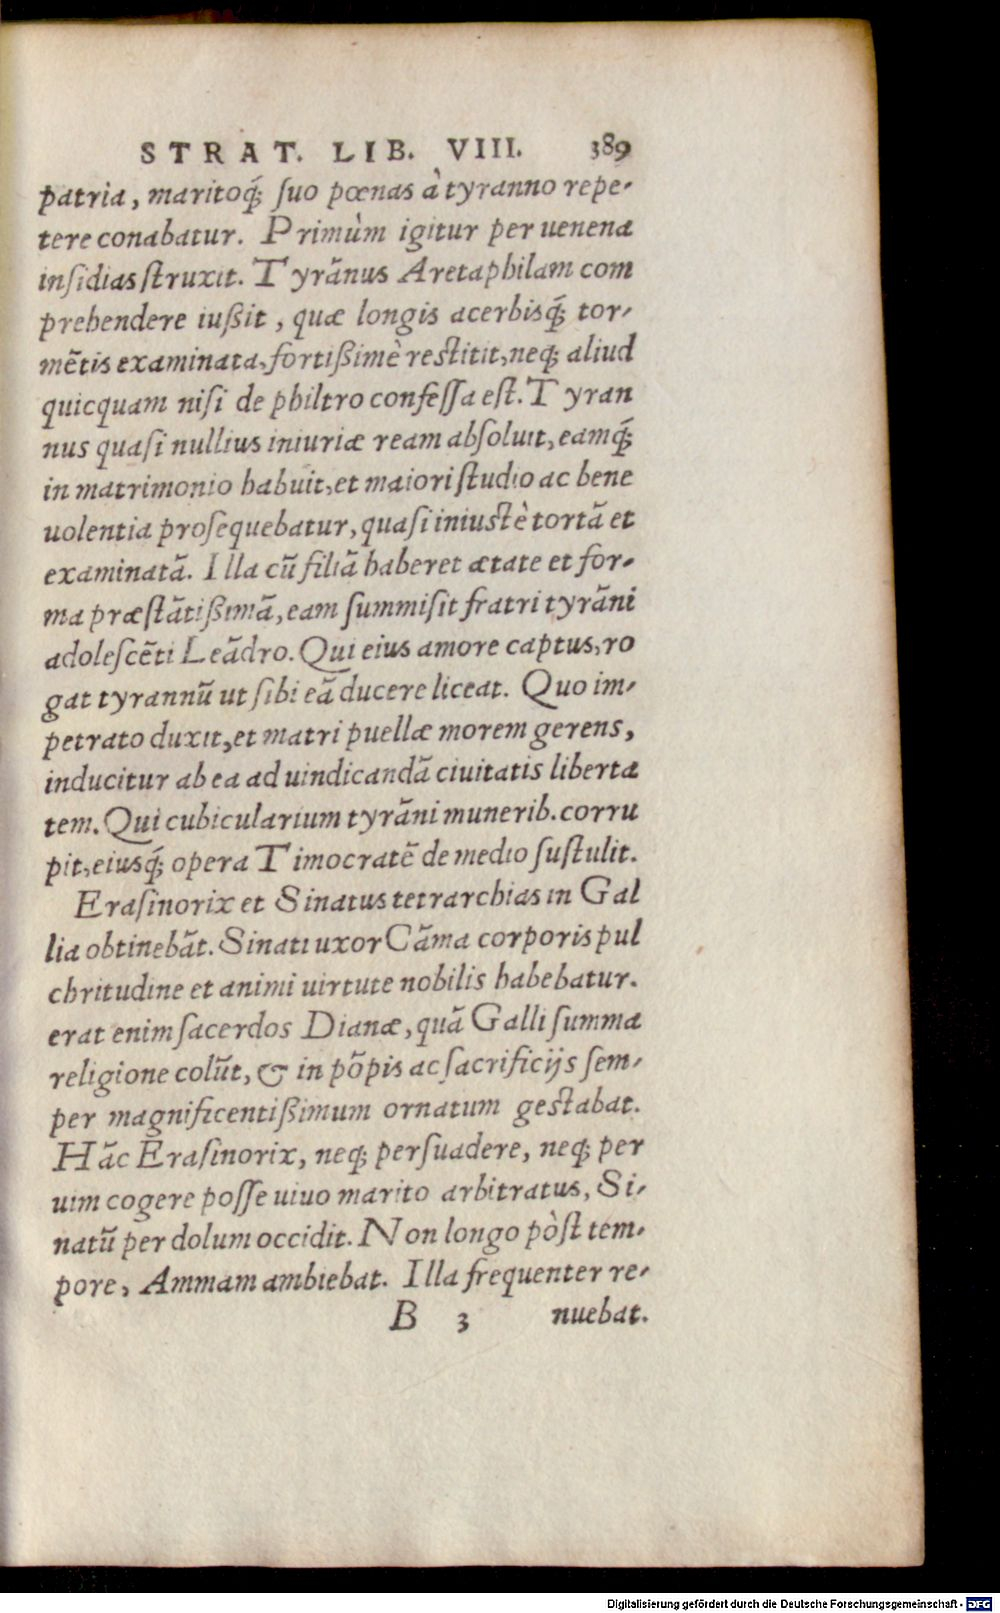 STRAT. LIB. VIII. 389
patria, maritoq́; ſuo pœnas à tyranno repe-
tere conabatur. Primùm igitur per uenena
inſidias ſtruxit. Tyrãnus Aretaphilam com
prehendere iußit, quæ longis acerbisq́; tor-
mẽtis examinata, fortißimè reſtitit, neq; aliud
quicquam niſi de philtro confeſſa eſt. Tyran
nus quaſi nullius iniuriæ ream abſoluit, eamq́;
in matrimonio habuit, et maiori ſtudio ac bene
uolentia proſequebatur, quaſi iniuſtè tortã et
examinatã. Illa cũ filiã haberet ætate et for-
ma præſtãtißimã, eam ſummiſit fratri tyrãni
adoleſcẽti Leãdro. Qui eius amore captus, ro
gat tyrannũ ut ſibi eã ducere liceat. Quo im-
petrato duxit, et matri puellæ morem gerens,
inducitur ab ea ad uindicandã ciuitatis liberta
tem. Qui cubicularium tyrãni munerib. corru
pit, eiusq́; opera Timocratẽ de medio ſuſtulit.
Eraſinorix et Sinatus tetrarchias in Gal
lia obtinebãt. Sinati uxor Cãma corporis pul
chritudine et animi uirtute nobilis habebatur.
erat enim ſacerdos Dianæ, quã Galli ſumma
religione colũt, & in põpis ac ſacrificijs ſem-
per magnificentißimum ornatum geſtabat.
Hãc Eraſinorix, neq; perſuadere, neq; per
uim cogere poſſe uiuo marito arbitratus, Si-
natũ per dolum occidit. Non longo pòſt tem-
pore, Ammam ambiebat. Illa frequenter re-
B 3 nuebat.
Digitalisierung gefördert durch die Deutsche Forschungsgemeinschaft - DFG